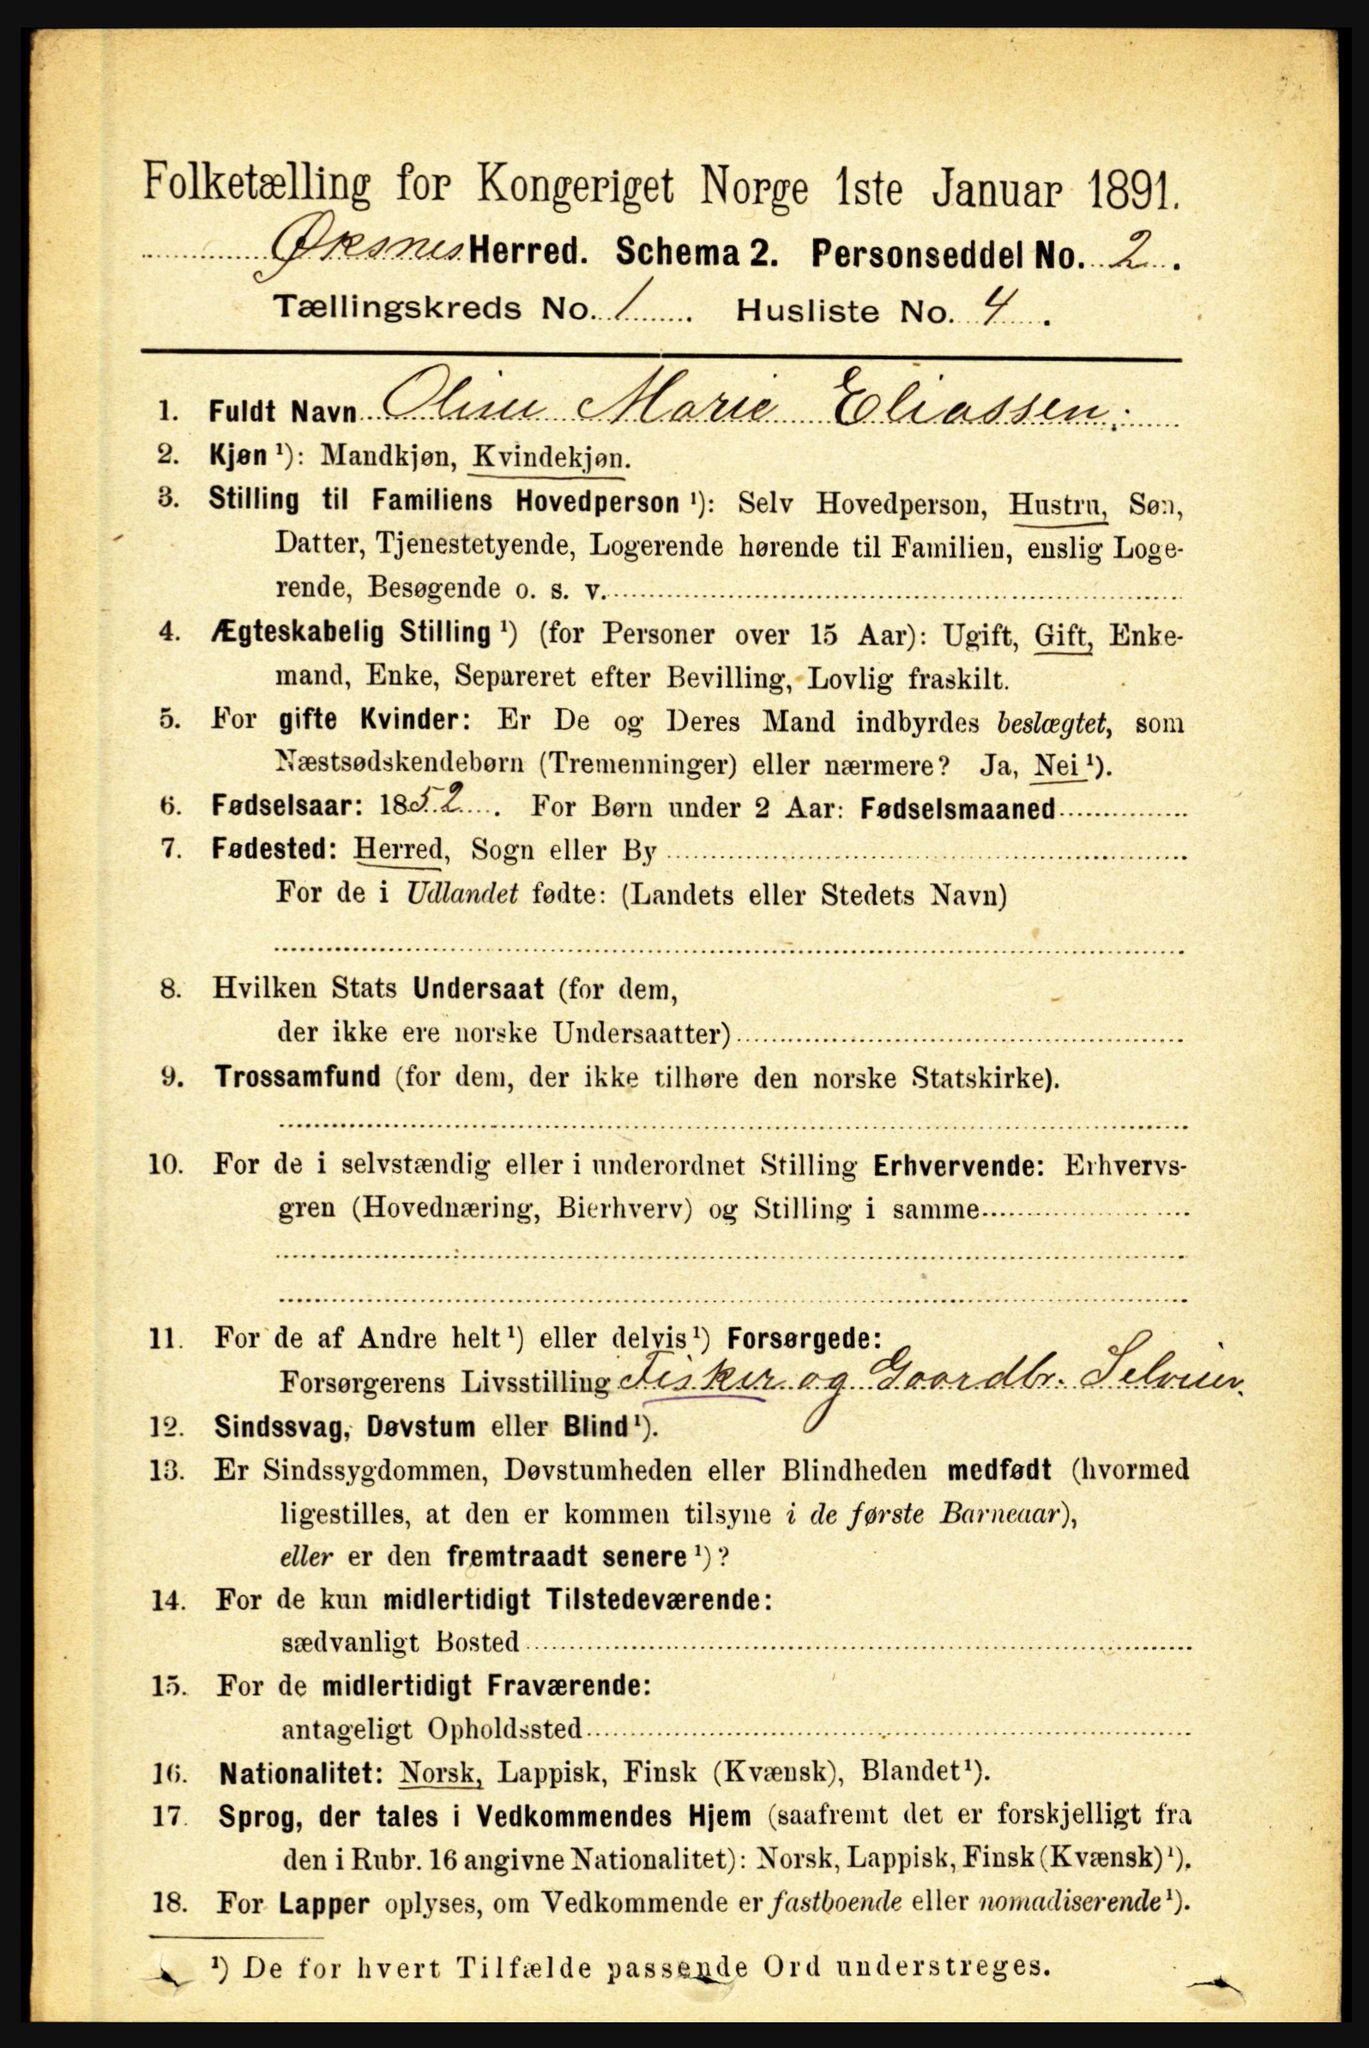 Folketælling for Kongeriget Norge 1ste Januar 1891.
Øksnes Herred. Schema 2. Personseddel No. 2.
Tællingskreds No. 1. Husliste No. 4.
1. Fuldt Navn Oline Marie Eliassen.
2. Kjøn ¹): Mandkjøn, Kvindekjøn.
3. Stilling til Familiens Hovedperson ¹): Selv Hovedperson, Hustru, Søn,
Datter, Tjenestetyende, Logerende hørende til Familien, enslig Loge-
rende, Besøgende o. s. v.
4. Ægteskabelig Stilling ¹) (for Personer over 15 Aar): Ugift, Gift, Enke-
mand, Enke, Separeret efter Bevilling, Lovlig fraskilt.
5. For gifte Kvinder: Er De og Deres Mand indbyrdes beslægtet, som
Næstsødskendebørn (Tremenninger) eller nærmere? Ja, Nei ¹).
6. Fødselsaar: 1852. For Børn under 2 Aar: Fødselsmaaned
7. Fødested: Herred, Sogn eller By
For de i Udlandet fødte: (Landets eller Stedets Navn)
8. Hvilken Stats Undersaat (for dem,
der ikke ere norske Undersaatter)
9. Trossamfund (for dem, der ikke tilhøre den norske Statskirke).
10. For de i selvstændig eller i underordnet Stilling Erhvervende: Erhvervs-
gren (Hovednæring, Bierhverv) og Stilling i samme
11. For de af Andre helt ¹) eller delvis ¹) Forsørgede:
Forsørgerens Livsstilling Fisker og Gaardbr. Selveier.
12. Sindssvag, Døvstum eller Blind ¹).
13. Er Sindssygdommen, Døvstumheden eller Blindheden medfødt (hvormed
ligestilles, at den er kommen tilsyne i de første Barneaar),
eller er den fremtraadt senere ¹)?
14. For de kun midlertidigt Tilstedeværende:
sædvanligt Bosted
15. For de midlertidigt Fraværende:
antageligt Opholdssted
16. Nationalitet: Norsk, Lappisk, Finsk (Kvænsk), Blandet ¹).
17. Sprog, der tales i Vedkommendes Hjem (saafremt det er forskjelligt fra
den i Rubr. 16 angivne Nationalitet): Norsk, Lappisk, Finsk (Kvænsk) ¹).
18. For Lapper oplyses, om Vedkommende er fastboende eller nomadiserende ¹).
¹) De for hvert Tilfælde passende Ord understreges.